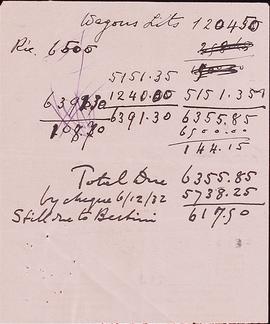 Wagons Lits 120450
Ric. 6500
5151.35
1240.00 5151.35
6391.30 6355.85
6500.00
144.15
Total Due 6355.85
by cheque 6/12/32 5738.25
Still due to Bertini 617.50